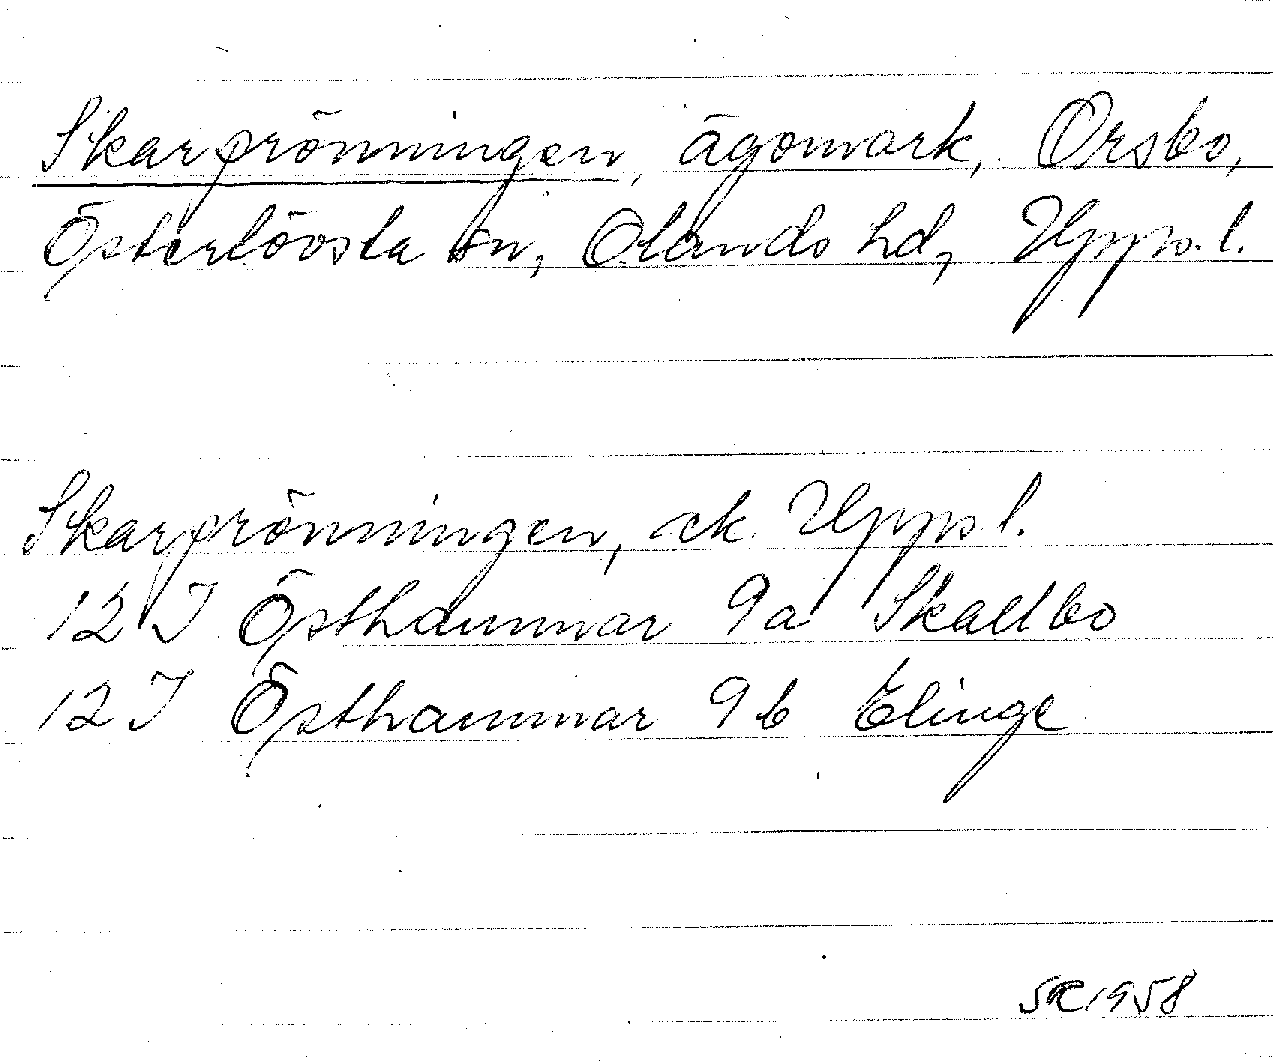 Skarprönningen, ägomark, Orsbo,
Österlövsta sn, Olands hd, Upps. l.
Skarprönningen, ek. Upps l.
12 I Östhammar 9a Skallbo
12 I Östhammar 9b Elinge
1958